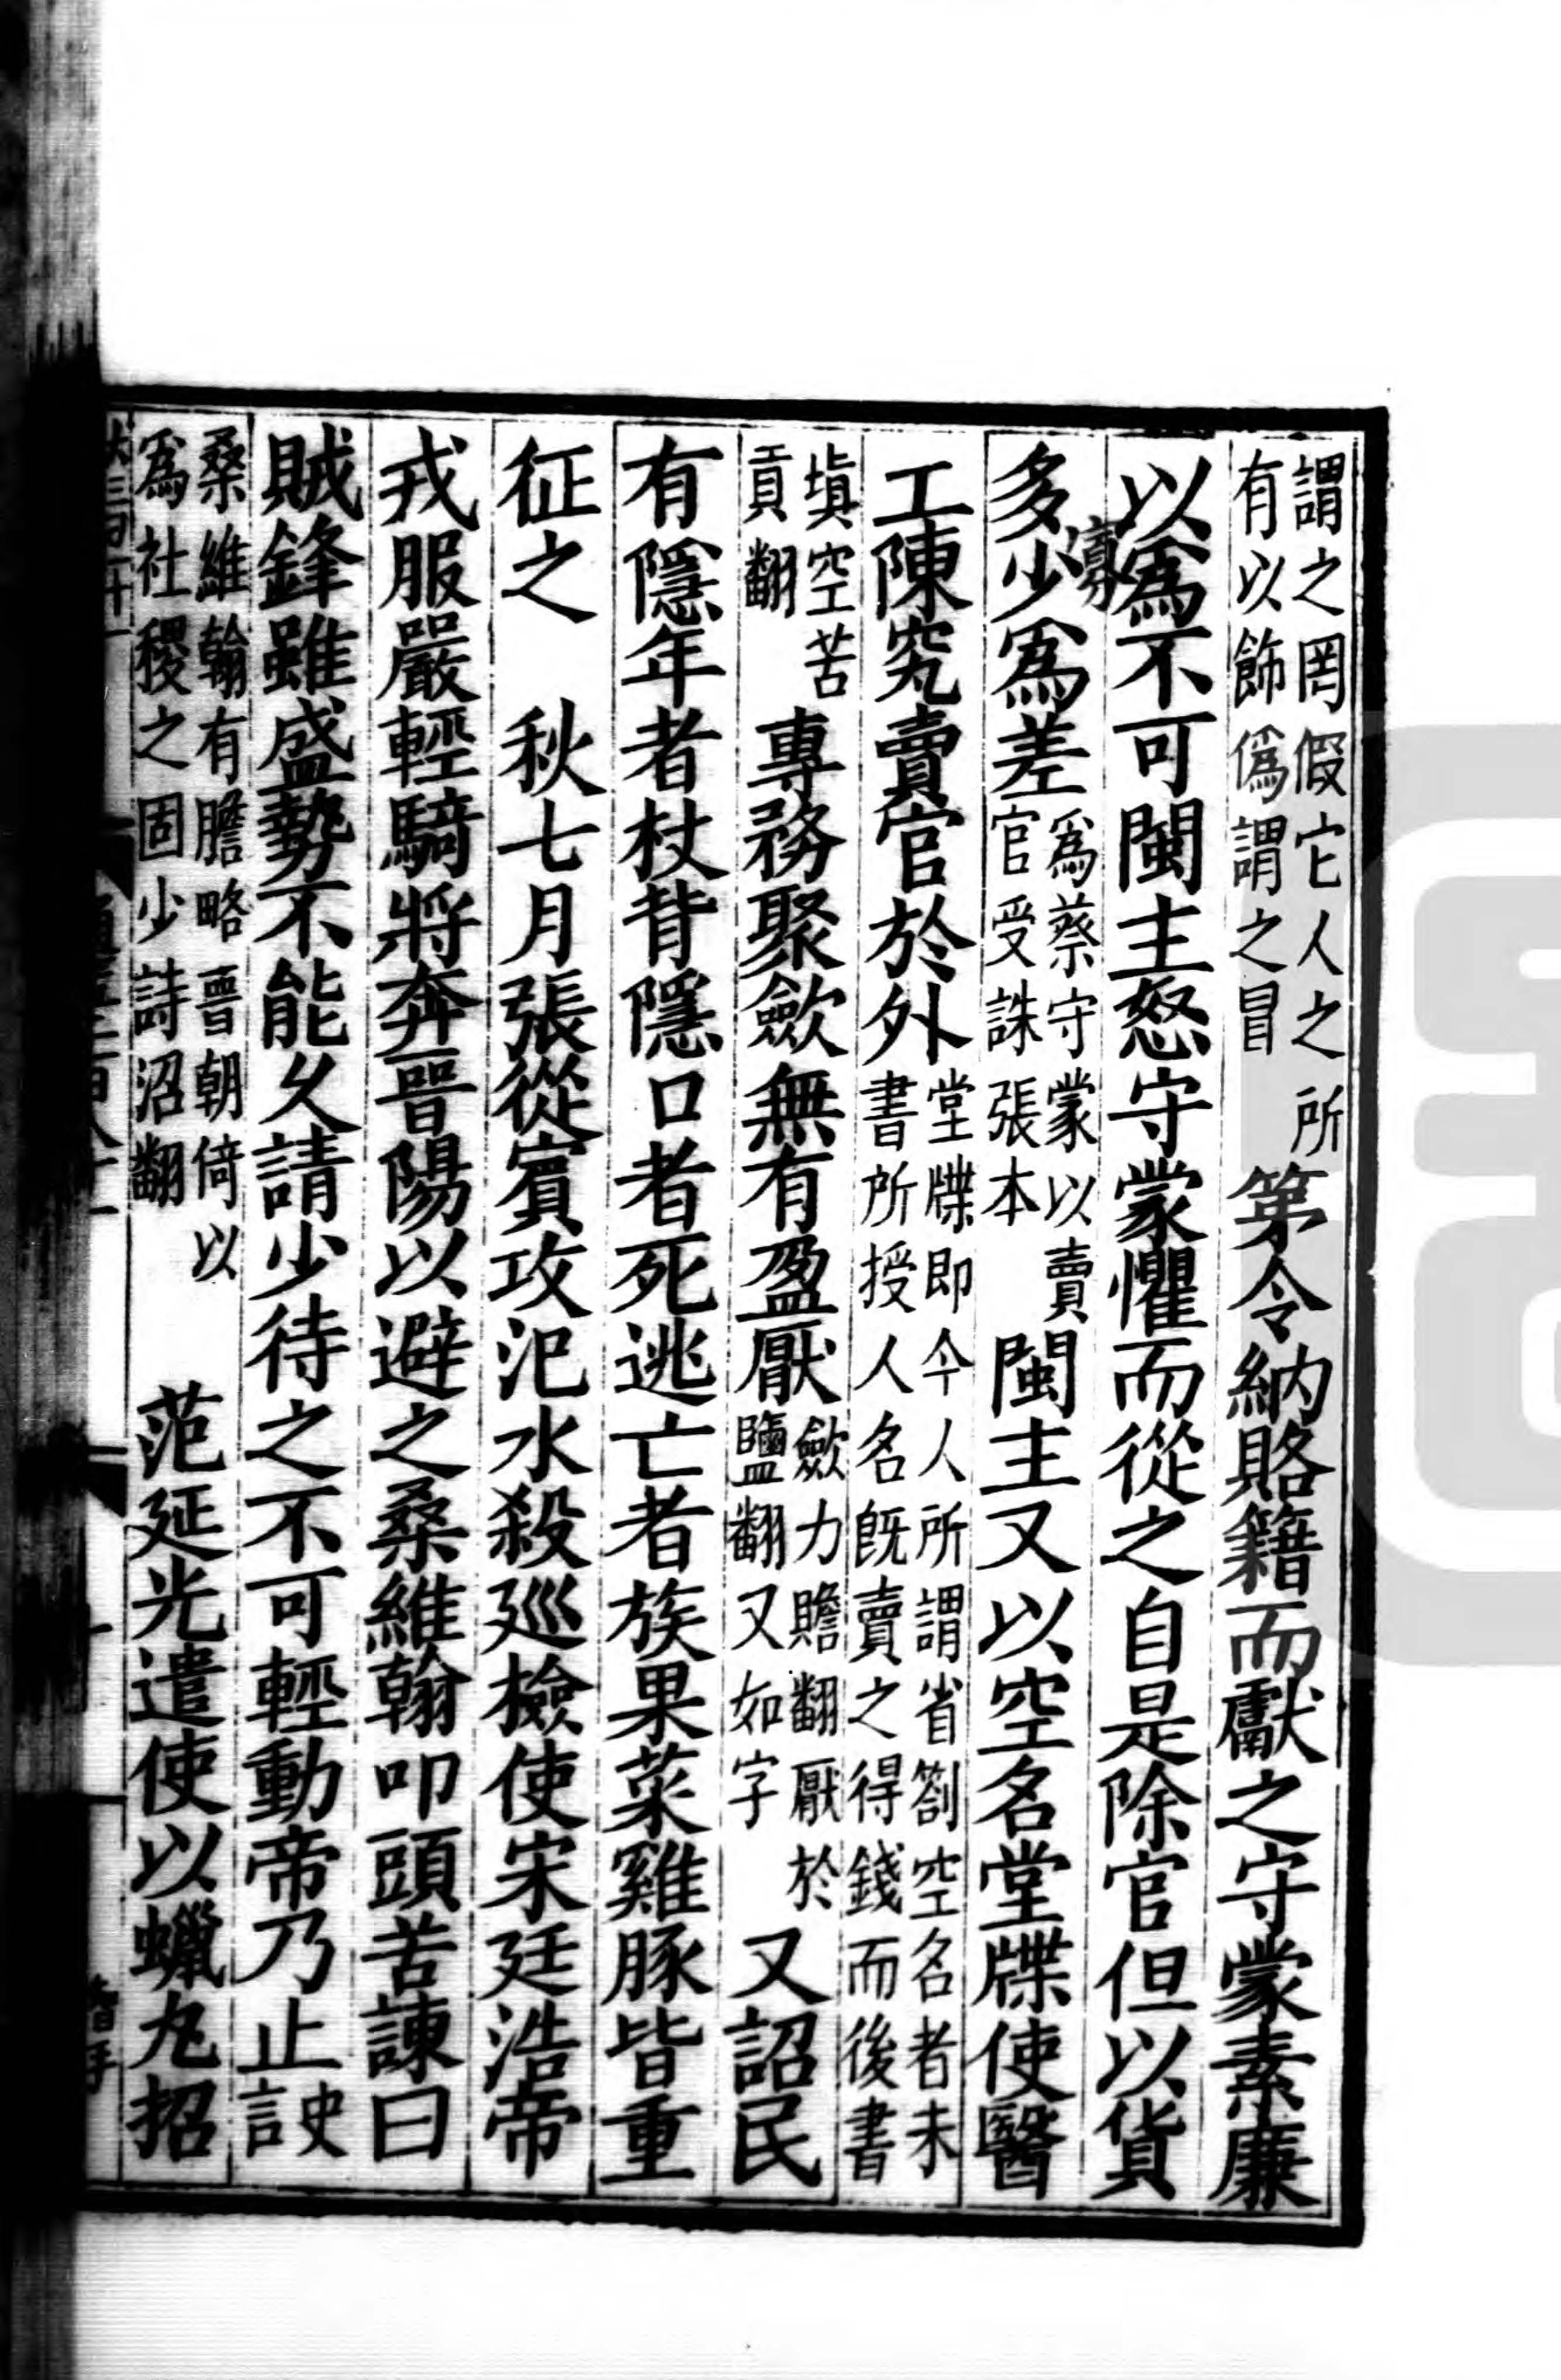 謂之罔假它人之所有以飾僞謂之冒第令納賂籍而獻之守蒙素廉
以爲不可閩主怒守蒙懼而從之自是除官但以貨
多少爲差爲蔡守蒙以賣官受誅張本閩主又以空名堂牒使醫
工陳究賣官於外堂牒即今人所謂省劄空名者未書所授人名旣賣之得錢而後書
塡空苦貢翻專務聚歛無有盈厭歛力贍翻厭於鹽翻又如字又詔民
有隱年者杖背隱口者死逃亡者族果菜雞豚皆重
征之 秋七月張從賓攻汜水殺廵檢使宋廷浩帝
戎服嚴輕騎將奔晉陽以避之桑維翰叩頭苦諫曰
賊鋒雖盛勢不能乆請少待之不可輕動帝乃止史言
桑維翰有膽略晉朝倚以爲社稷之固少詩沼翻 范延光遣使以蠟丸招